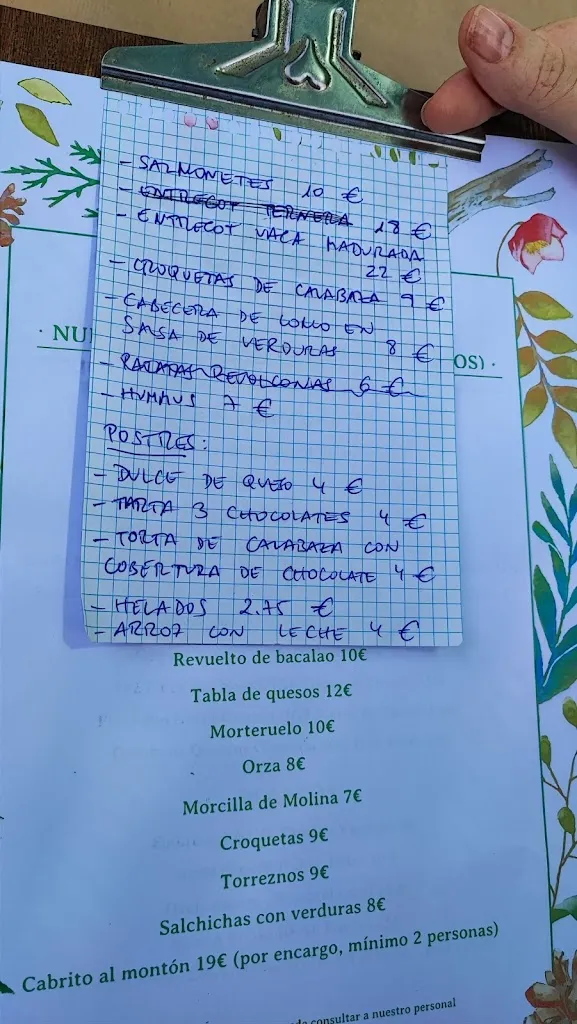 - SALMONETES 10 €
- ENTRECOT TERNERA 18 €
- ENTRECOT VACA MADURADA
22 €
- CROQUETAS DE CALABAZA 9 €
- CABECERA DE LOMO EN
SALSA DE VERDURAS 8 €
- PATATAS REVOLCONAS 6 €
- HUMMUS 7 €
POSTRES:
- DULCE DE QUESO 4 €
- TARTA 3 CHOCOLATES 4 €
- TORTA DE CALABAZA CON
COBERTURA DE CHOCOLATE 4 €
- HELADOS 2.75 €
- ARROZ CON LECHE 4 €
· NU
OS) ·
Revuelto de bacalao 10€
Tabla de quesos 12€
Morteruelo 10€
Orza 8€
Morcilla de Molina 7€
Croquetas 9€
Torreznos 9€
Salchichas con verduras 8€
Cabrito al montón 19€ (por encargo, mínimo 2 personas)
consultar a nuestro personal